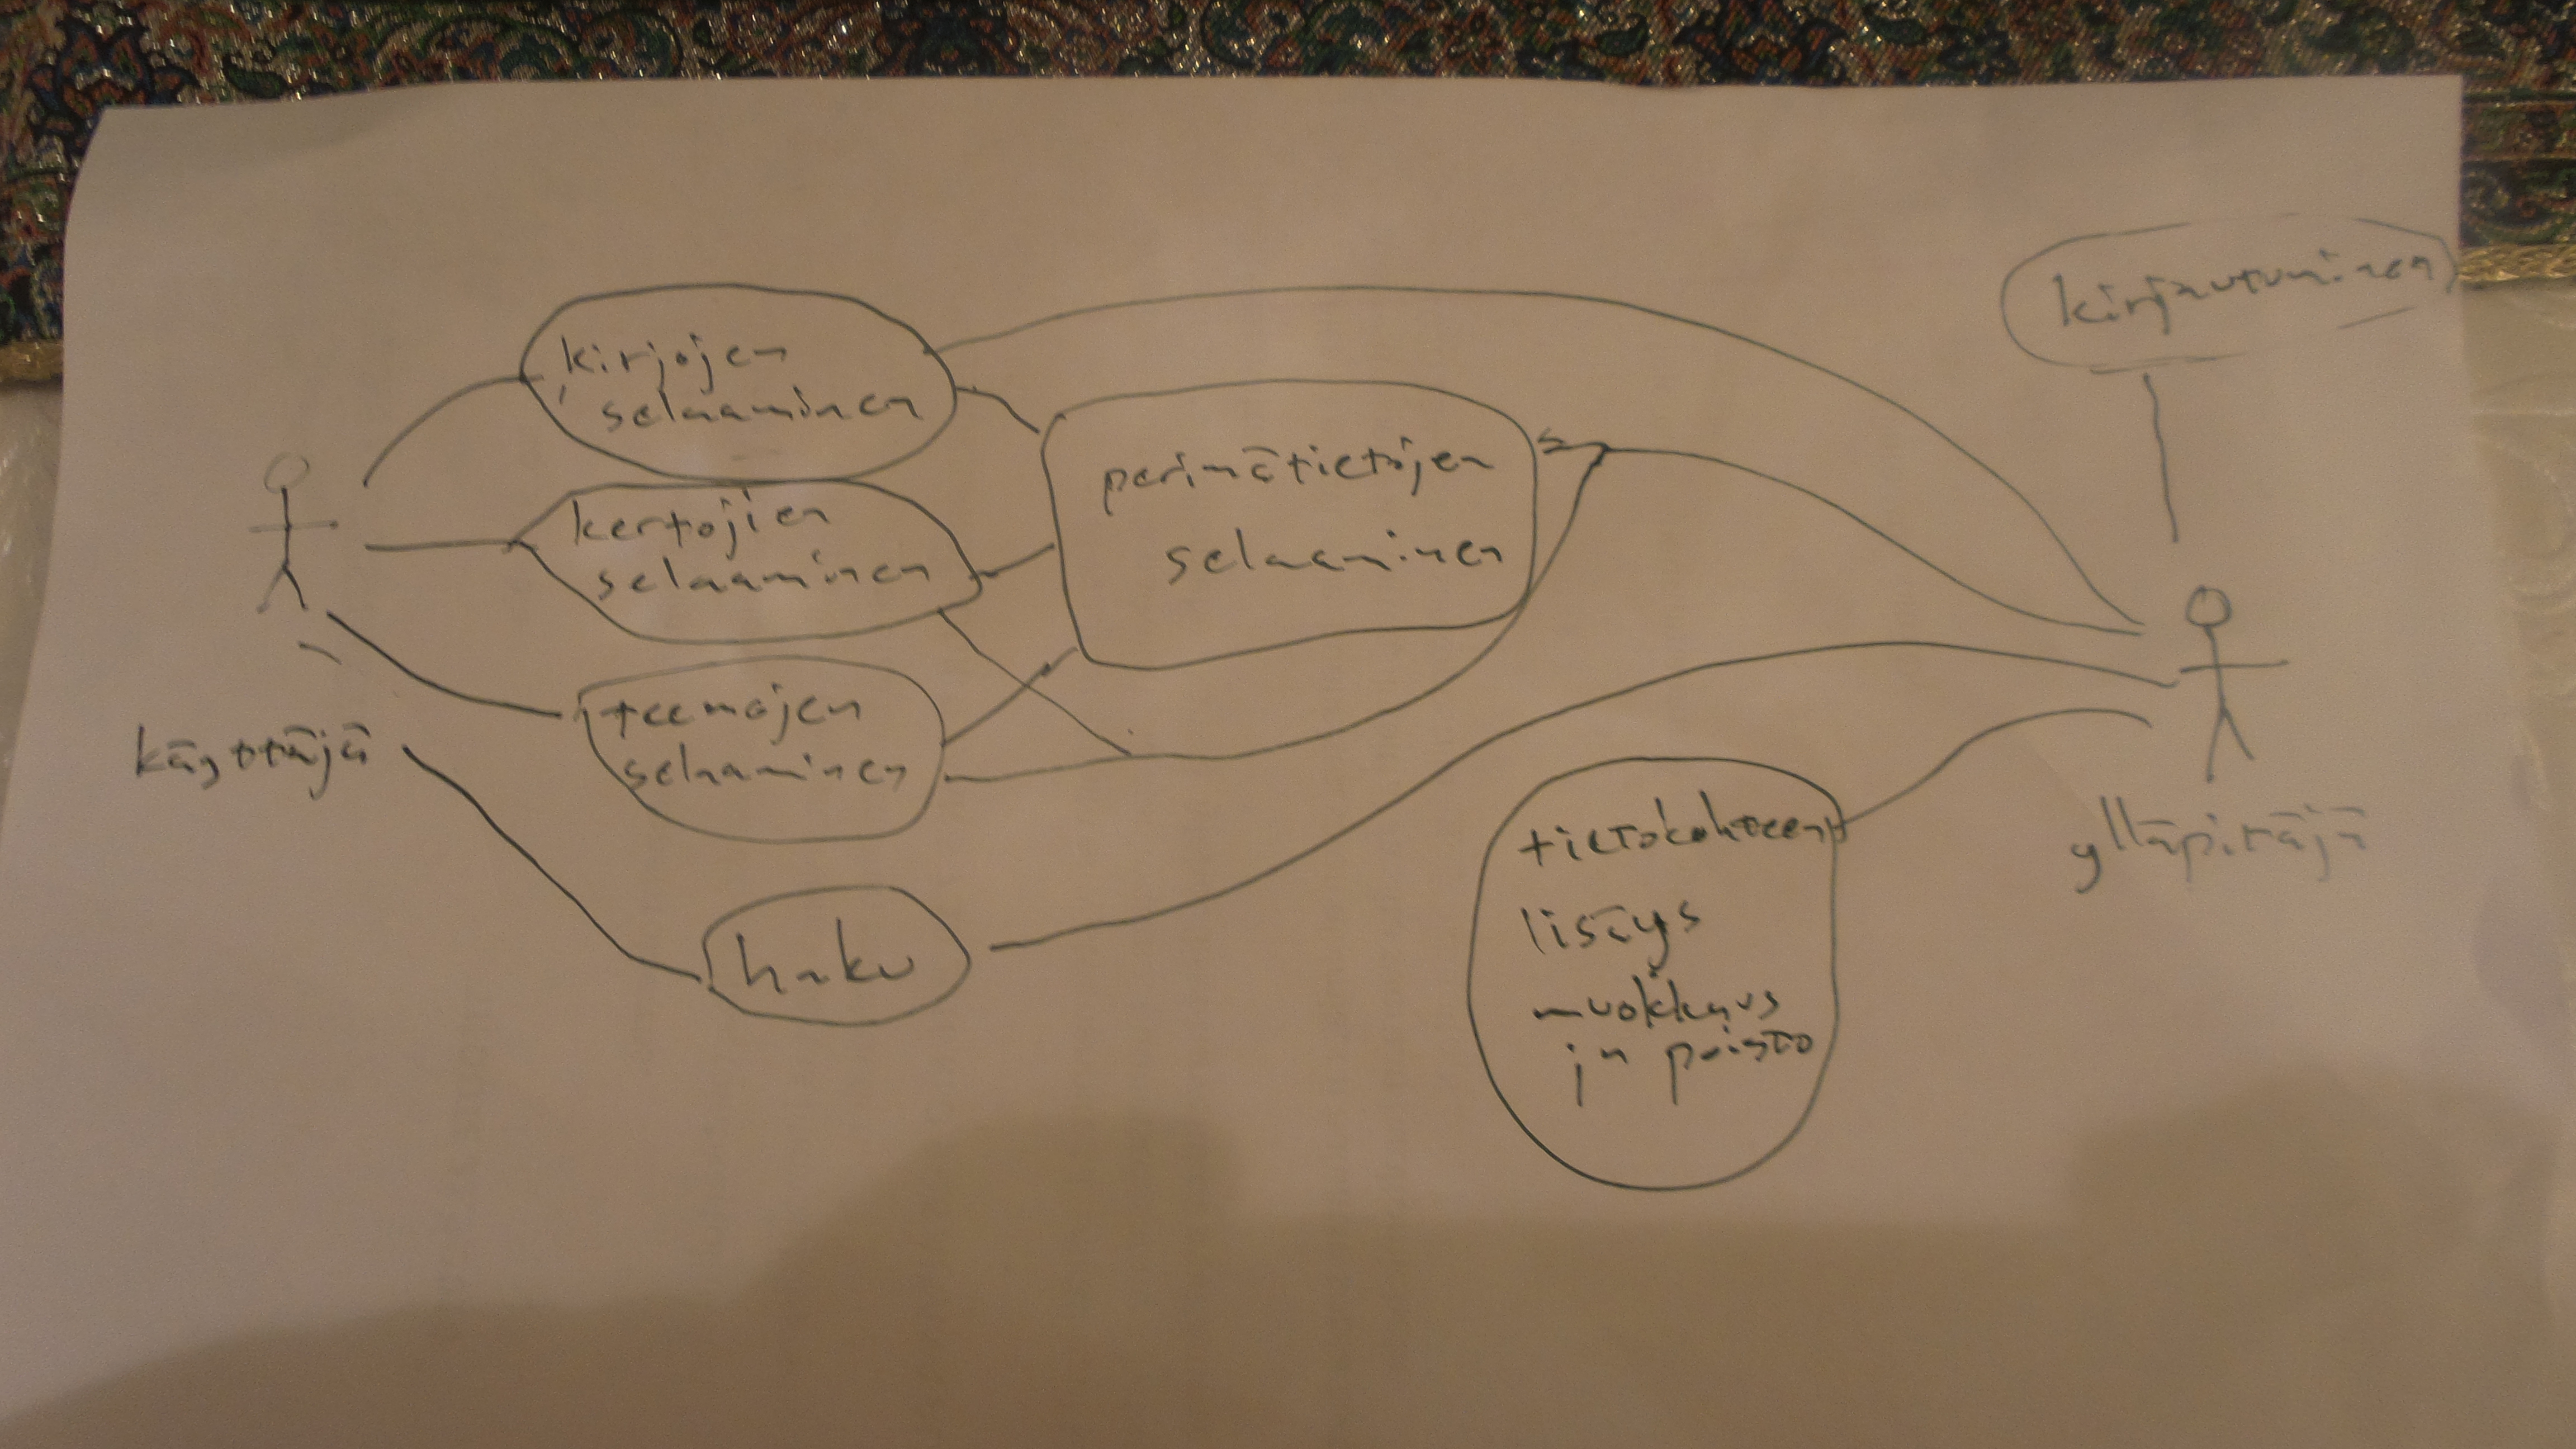 kirjautuminen
kirjojen
selaaminen
perimätietojen
selaaminen
kertojien
selaaminen
teemojen
selaaminen
käyttäjä
ylläpitäjä
haku
tietokohteen
lisäys
muokkaus
ja poisto